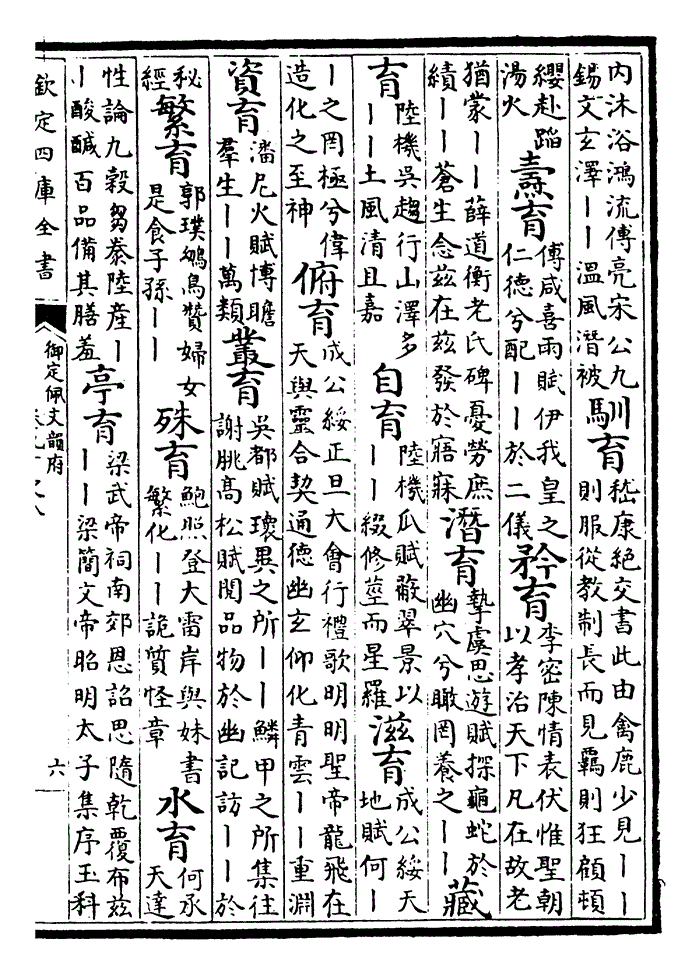 内沐浴鴻流傅亮宋公九
錫文玄澤丨丨溫風潛被
馴育
嵇康絶交書此由禽鹿少見丨丨
則服從教制長而見羈則狂顧頓
纓赴蹈
湯火
壽育
傅咸喜雨賦伊我皇之
仁德兮配丨丨於二儀
矜育
李密陳情表伏惟聖朝
以孝治天下凡在故老
猶蒙丨丨薛道衡老氏碑憂勞庶
績丨丨蒼生念兹在兹發於寤寐
潛育
摯虞思遊賦探龜蛇於
幽穴兮瞰罔養之丨丨
藏
育
陸機吳趨行山澤多
丨丨土風清且嘉
自育
陸機瓜賦蔽翠景以
丨丨綴修莖而星羅
滋育
成公綏天
地賦何丨
丨之罔極兮偉
造化之至神
俯育
成公綏正旦大會行禮歌明明聖帝龍飛在
天與靈合契通德幽玄仰化青雲丨丨重淵
資育
潘尼火賦博贍
羣生丨丨萬類
叢育
吳都賦瓌異之所丨丨鱗甲之所集往
謝朓髙松賦閱品物於幽記訪丨丨於
秘
經
繁育
郭璞鴢鳥贊婦女
是食子孫丨丨
殊育
鮑照登大雷岸與妹書
繁化丨丨詭質怪章
水育
何承
天達
性論九穀芻豢陸産丨
丨酸鹹百品備其膳羞
亭育
梁武帝祠南郊恩詔思隨乾覆布兹
丨丨梁簡文帝昭明太子集序玉科
欽定四庫全書
御定佩文韻府
六